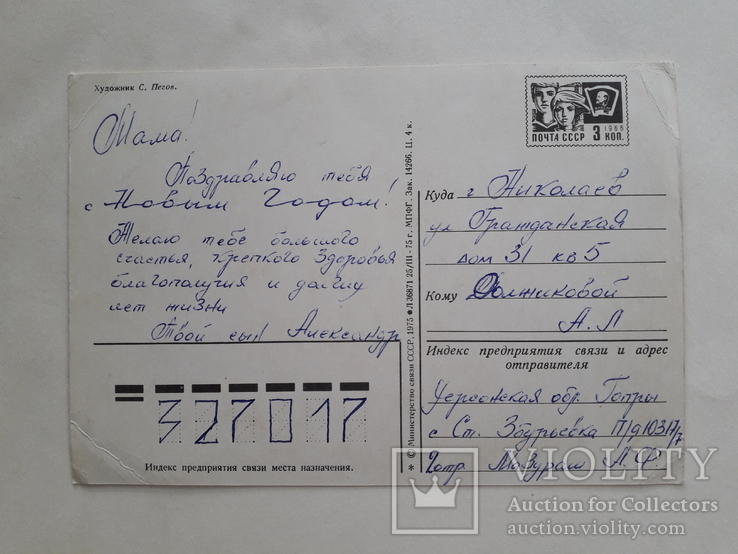 Художник С. Пегов.
Мама!
Поздравляю тебя
с Новым Годом!
Желаю тебе большого
счастья, крепкого здоровья
благополучия и долгих
лет жизни
Твой сын Александр
327017
Индекс предприятия связи места назначения.
* © Министерство связи СССР, 1975 ● Л 36871 25/III-75 г. МПФГ. Зак. 14266. Ц. 4 к.
1966
ПОЧТА СССР 3 КОП.
Куда г Николаев
ул Гражданская
дом 31 кв 5
Кому Должиковой
А. Л
Индекс предприятия связи и адрес
отправителя
Херсонская обл.
с Ст. Збурьевка П/Д ЮЗН/7
2 отр. А. Ф.
VIOLITY
Auction for Collectors
auction.violity.com